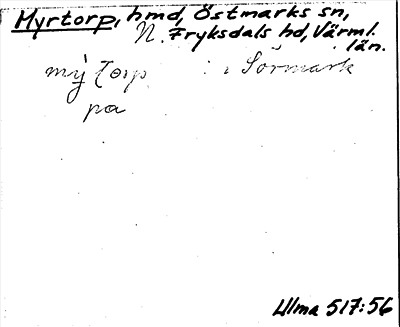 Myrtorp, hmd, Östmarks sn,
N. Fryksdals hd, Värml.
län.
mỳ torp : i Sörmark
pa
Ulma 517:56